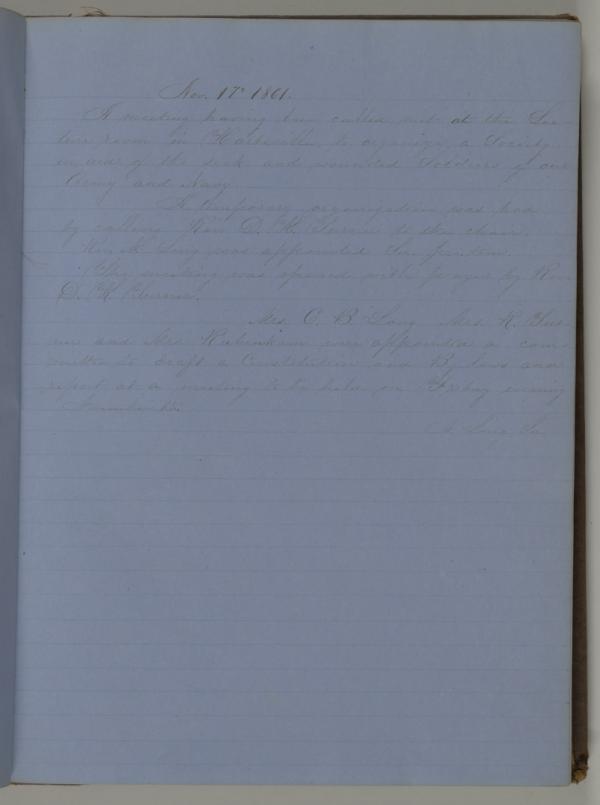 Nov. 17th 1861.
A meeting having been called met at the Lec-
ture room in Hartsville, to organize a Society
in aid of the sick and wounded Soldiers of our
Army and Navy
A temporary organization was had
by calling Rev. D. K. Turner to the chair.
Rev. M. Long was appointed Sec. pro tem.
The meeting was opened with prayer by Rev.
D. K. Turner.
Mrs. C. B. Long Mrs. R.
and Mrs were appointed a com-
mittee to draft a Constitution and By laws and
report at a meeting to be held on Friday evening
November
Long Sec